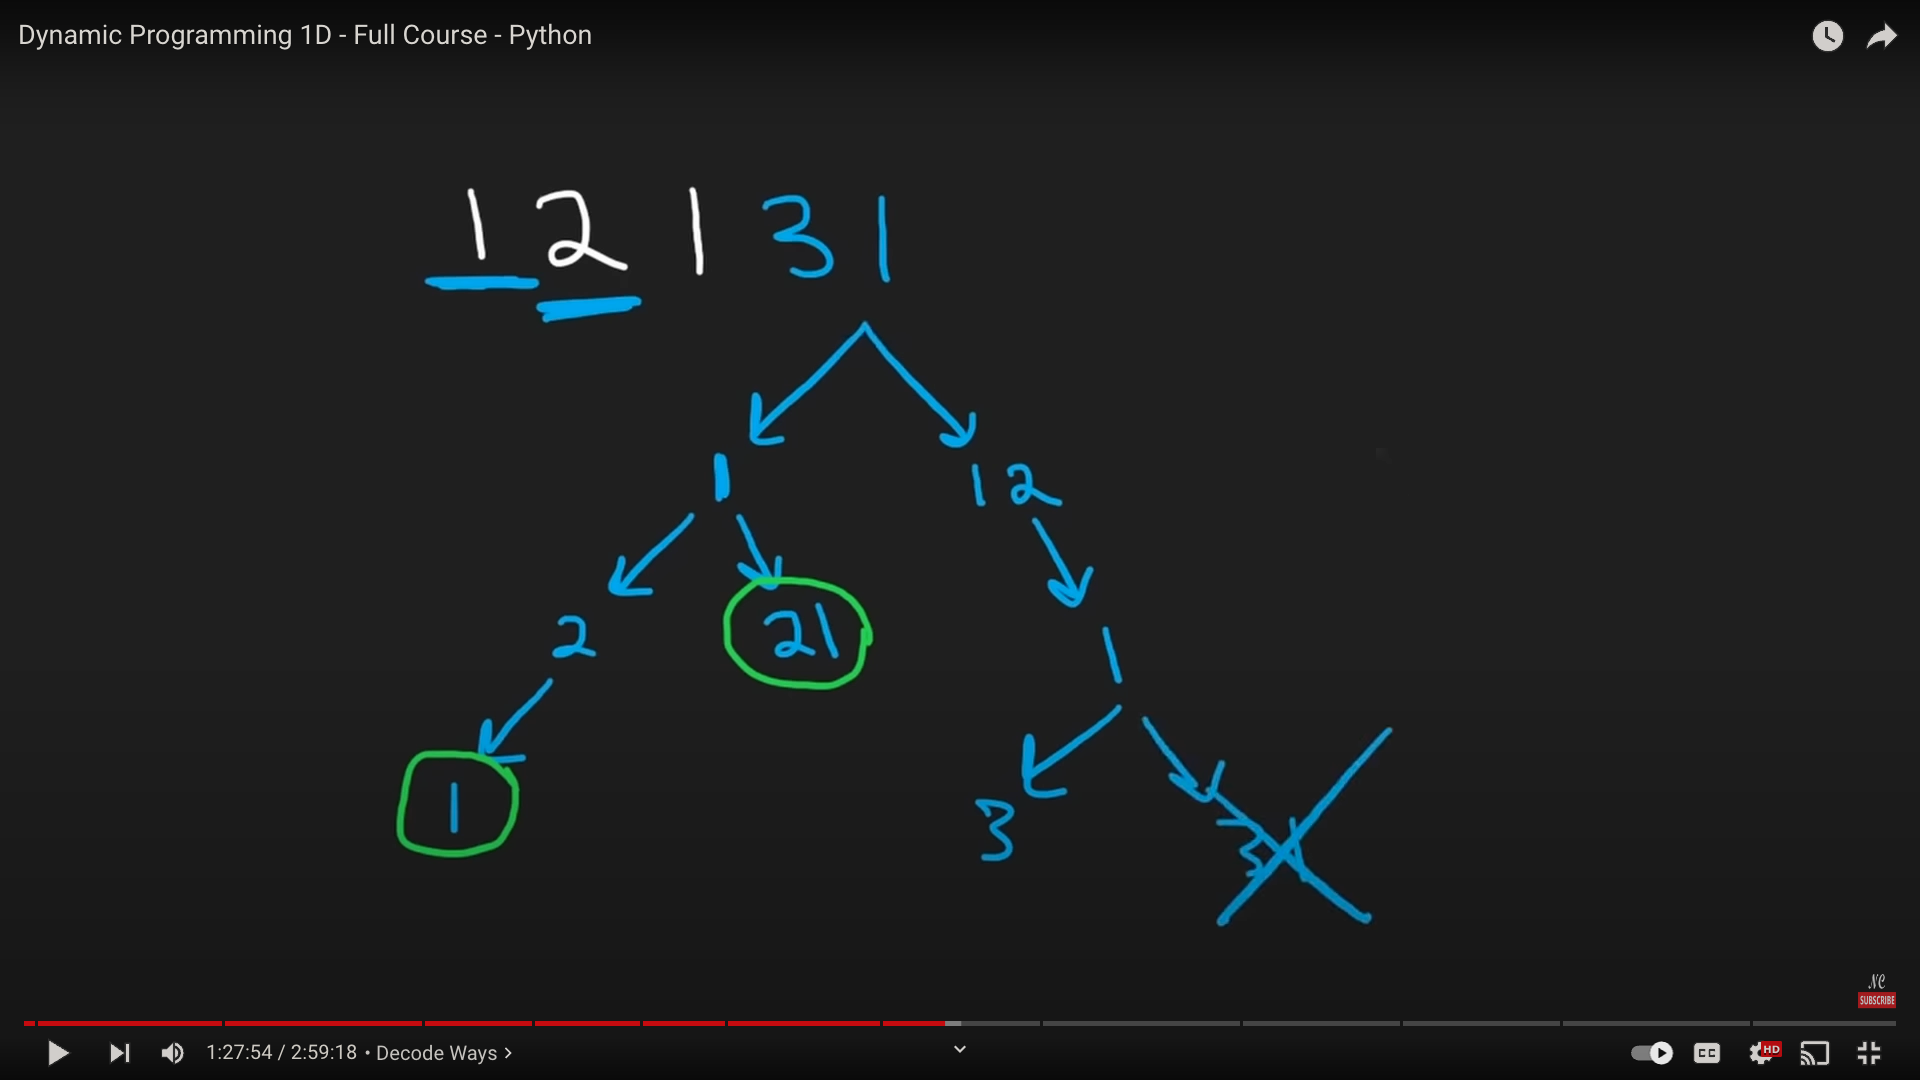 Dynamic Programming 1D - Full Course - Python
1 2 1 3 1
1 12
2 21 1
1 3 31
NC
SUBSCRIBE
1:27:54 / 2:59:18 • Decode Ways >
CC HD